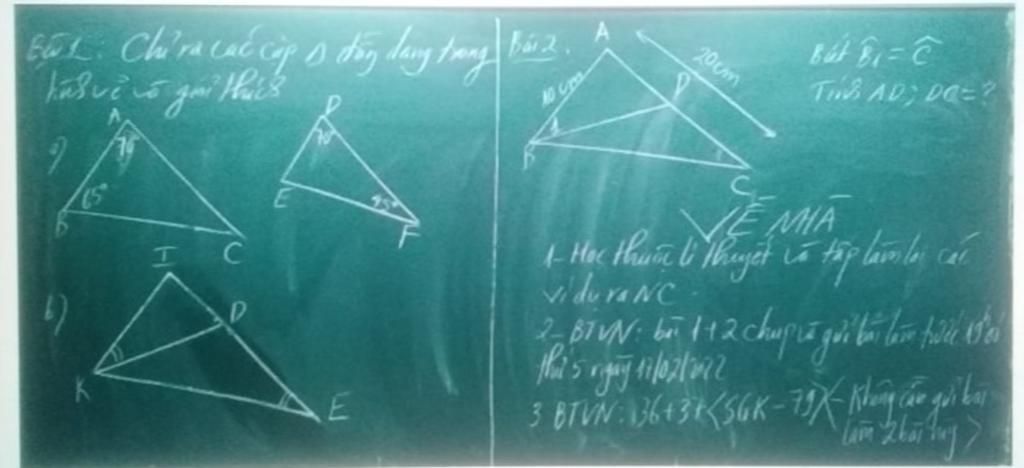 Bài 1: Chỉ ra các cặp Δ đồng dạng trong
hình vẽ và giải thích
a)
A
70°
65°
B
C
D
70°
E
45°
F
b)
I
D
K
E
Bài 2.
A
10cm
20cm
D
1
B
C
Biết B̂₁ = Ĉ
Tính AD; DC = ?
VỀ NHÀ
1- Học thuộc lí thuyết và tập làm lại các
ví dụ ra NC
2- BTVN: bài 1+2 chụp và gửi bài làm trước 19h00
thứ 5 ngày 17/02/2022
3 BTVN: 36+37 (SGK-79) - Không cần gửi bài
làm 2 bài này >